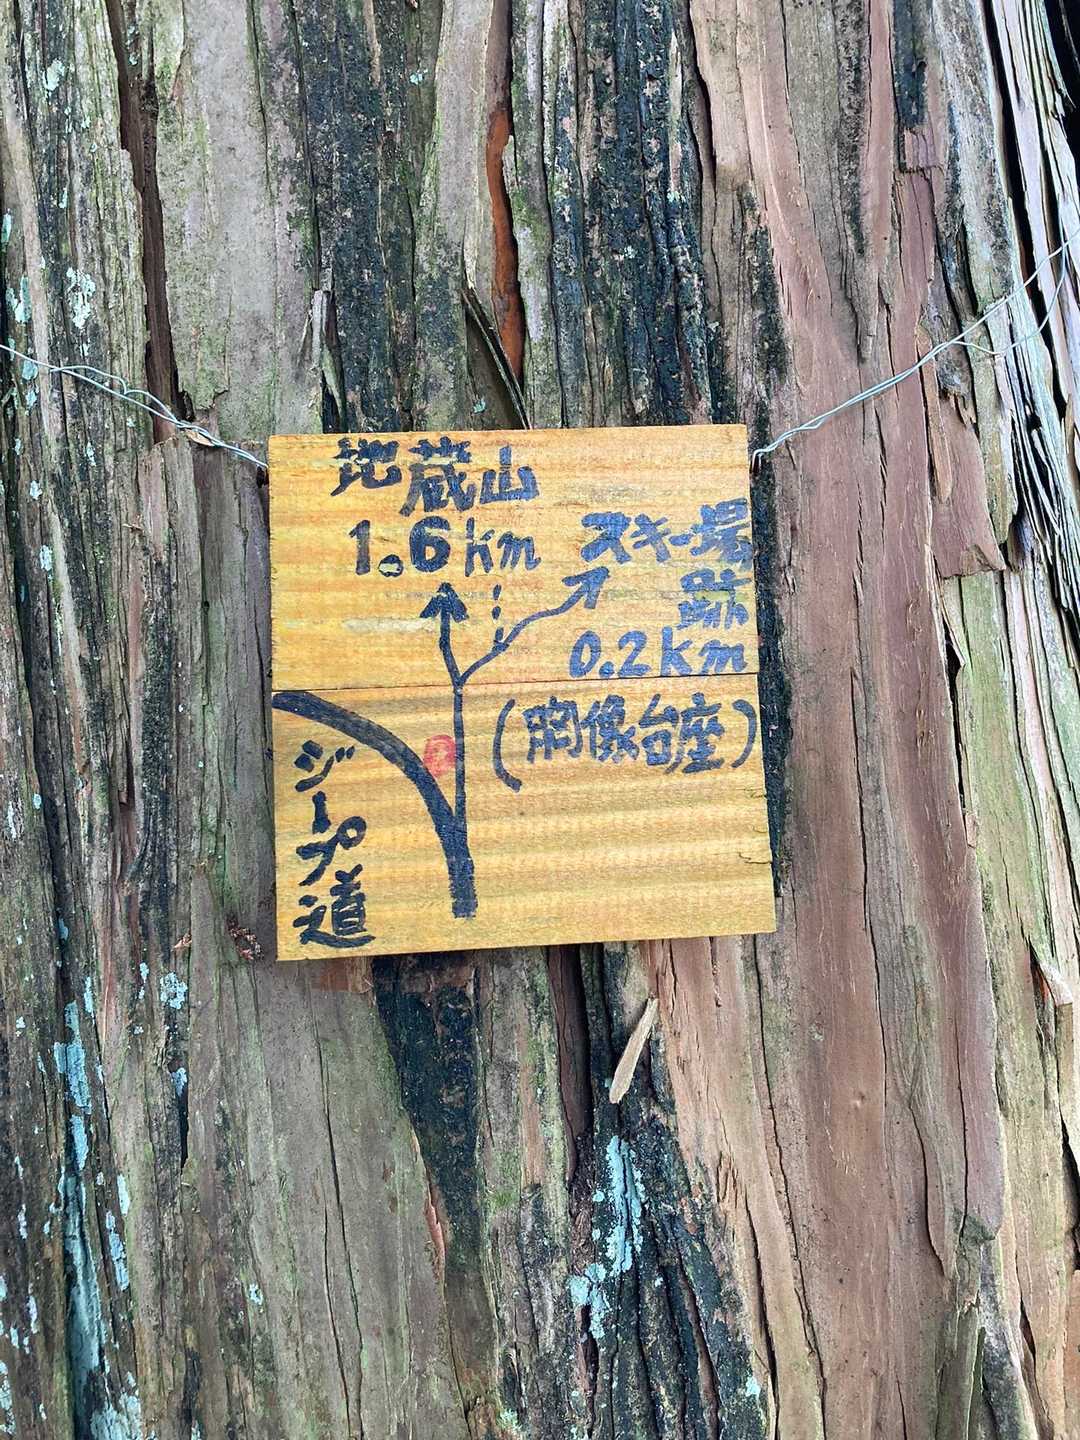 地蔵山
1.6km
スキー場
跡
0.2km
(胸像台座)
ジープ道